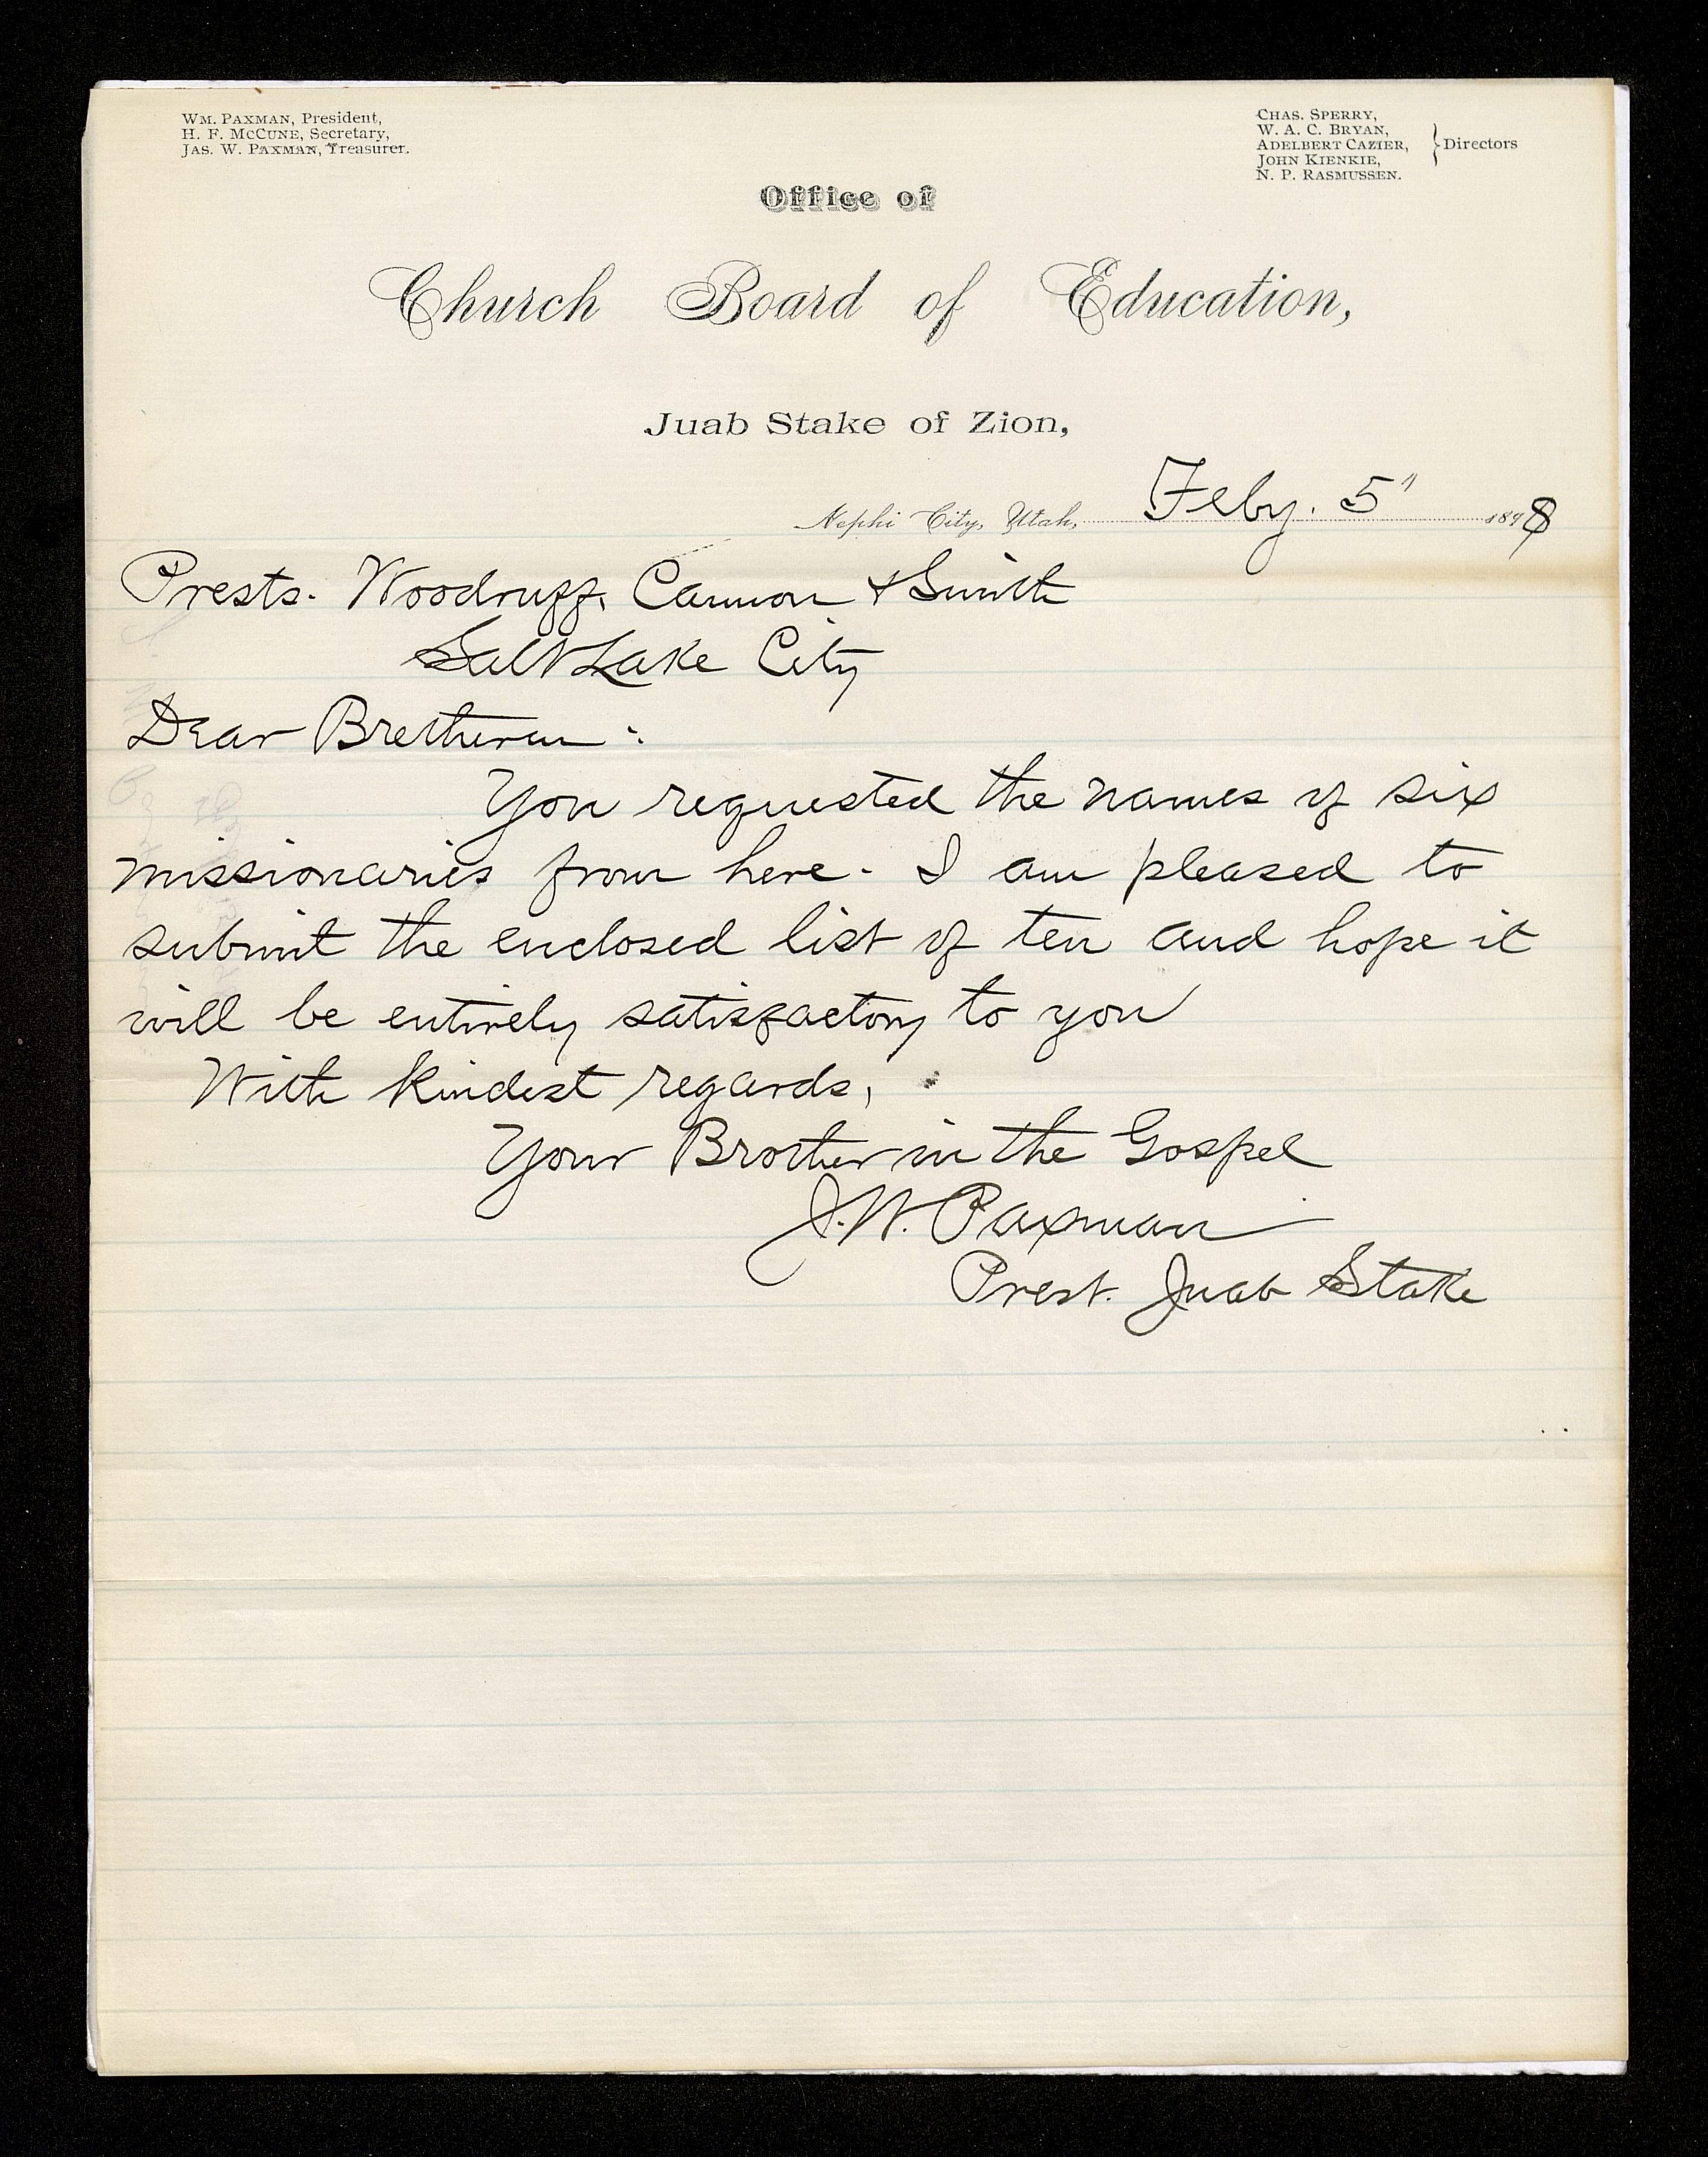 WM. PAXMAN, President,
H. F. MCCUNE, Secretary,
JAS. W. PAXMAN, Treasurer.
CHAS. SPERRY,
W. A. C. BRYAN,
ADELBERT CAZIER,
JOHN KIENKIE,
N. P. RASMUSSEN.
Directors
Office of
Church Board of Education,
Juab Stake of Zion,
Nephi City, Utah, Feby. 5" 1898
Prests. Woodruff, Cannon & Smith
Salt Lake City
Dear Bretheren:
You requested the names of six
missionaries from here. I am pleased to
submit the enclosed list of ten and hope it
will be entirely satisfactory to you
With kindest regards,
Your Brother in the Gospel
J. W. Paxman
Prest. Juab Stake